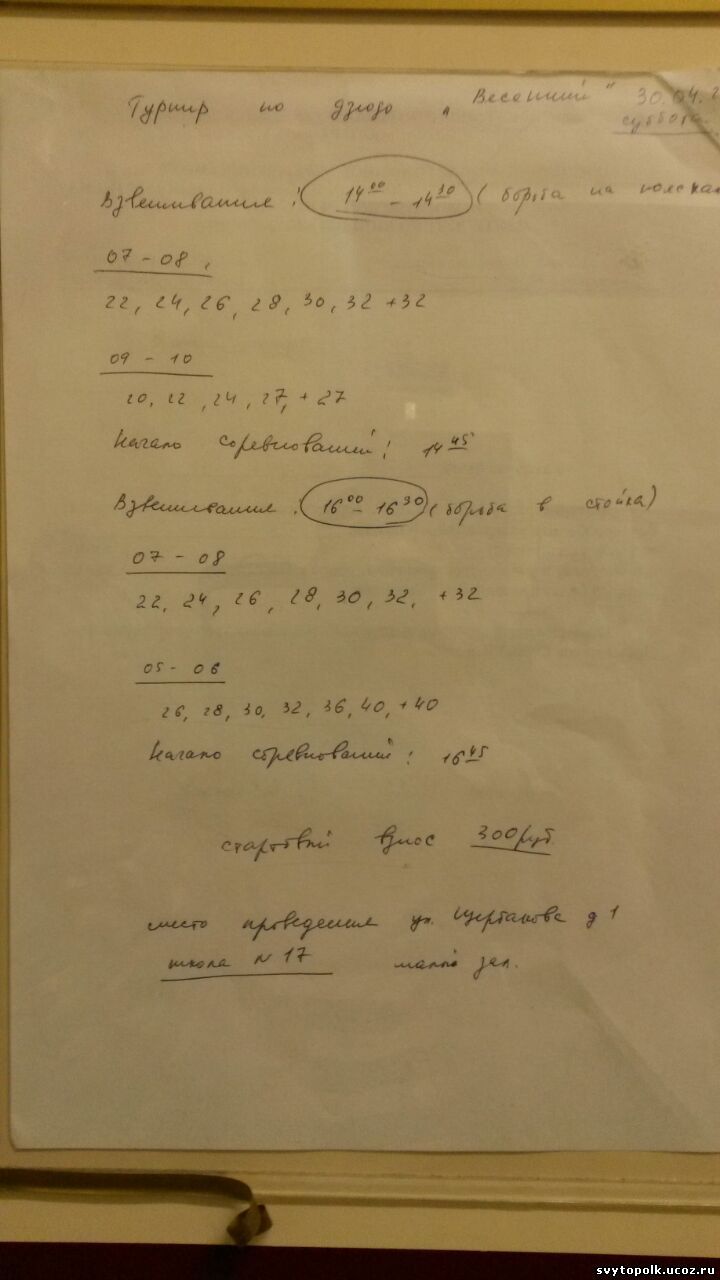 Турнир по дзюдо "Весенний" 30.04.2
суббота.
Взвешивание: 14⁰⁰ - 14³⁰ (борьба на
07 - 08.
22, 24, 26, 28, 30, 32 +32
09 - 10
20, 22, 24, 27, +27
Начало соревнований: 14⁴⁵
Взвешивание: 16⁰⁰ - 16³⁰ (борьба в стойке)
07 - 08
22, 24, 26, 28, 30, 32, +32
05 - 06
26, 28, 30, 32, 36, 40, +40
Начало соревнований: 16⁴⁵
стартовый взнос 300 руб
место проведения ул. Щербакова д 1
школа № 17 малый зал.
svytopolk.ucoz.ru